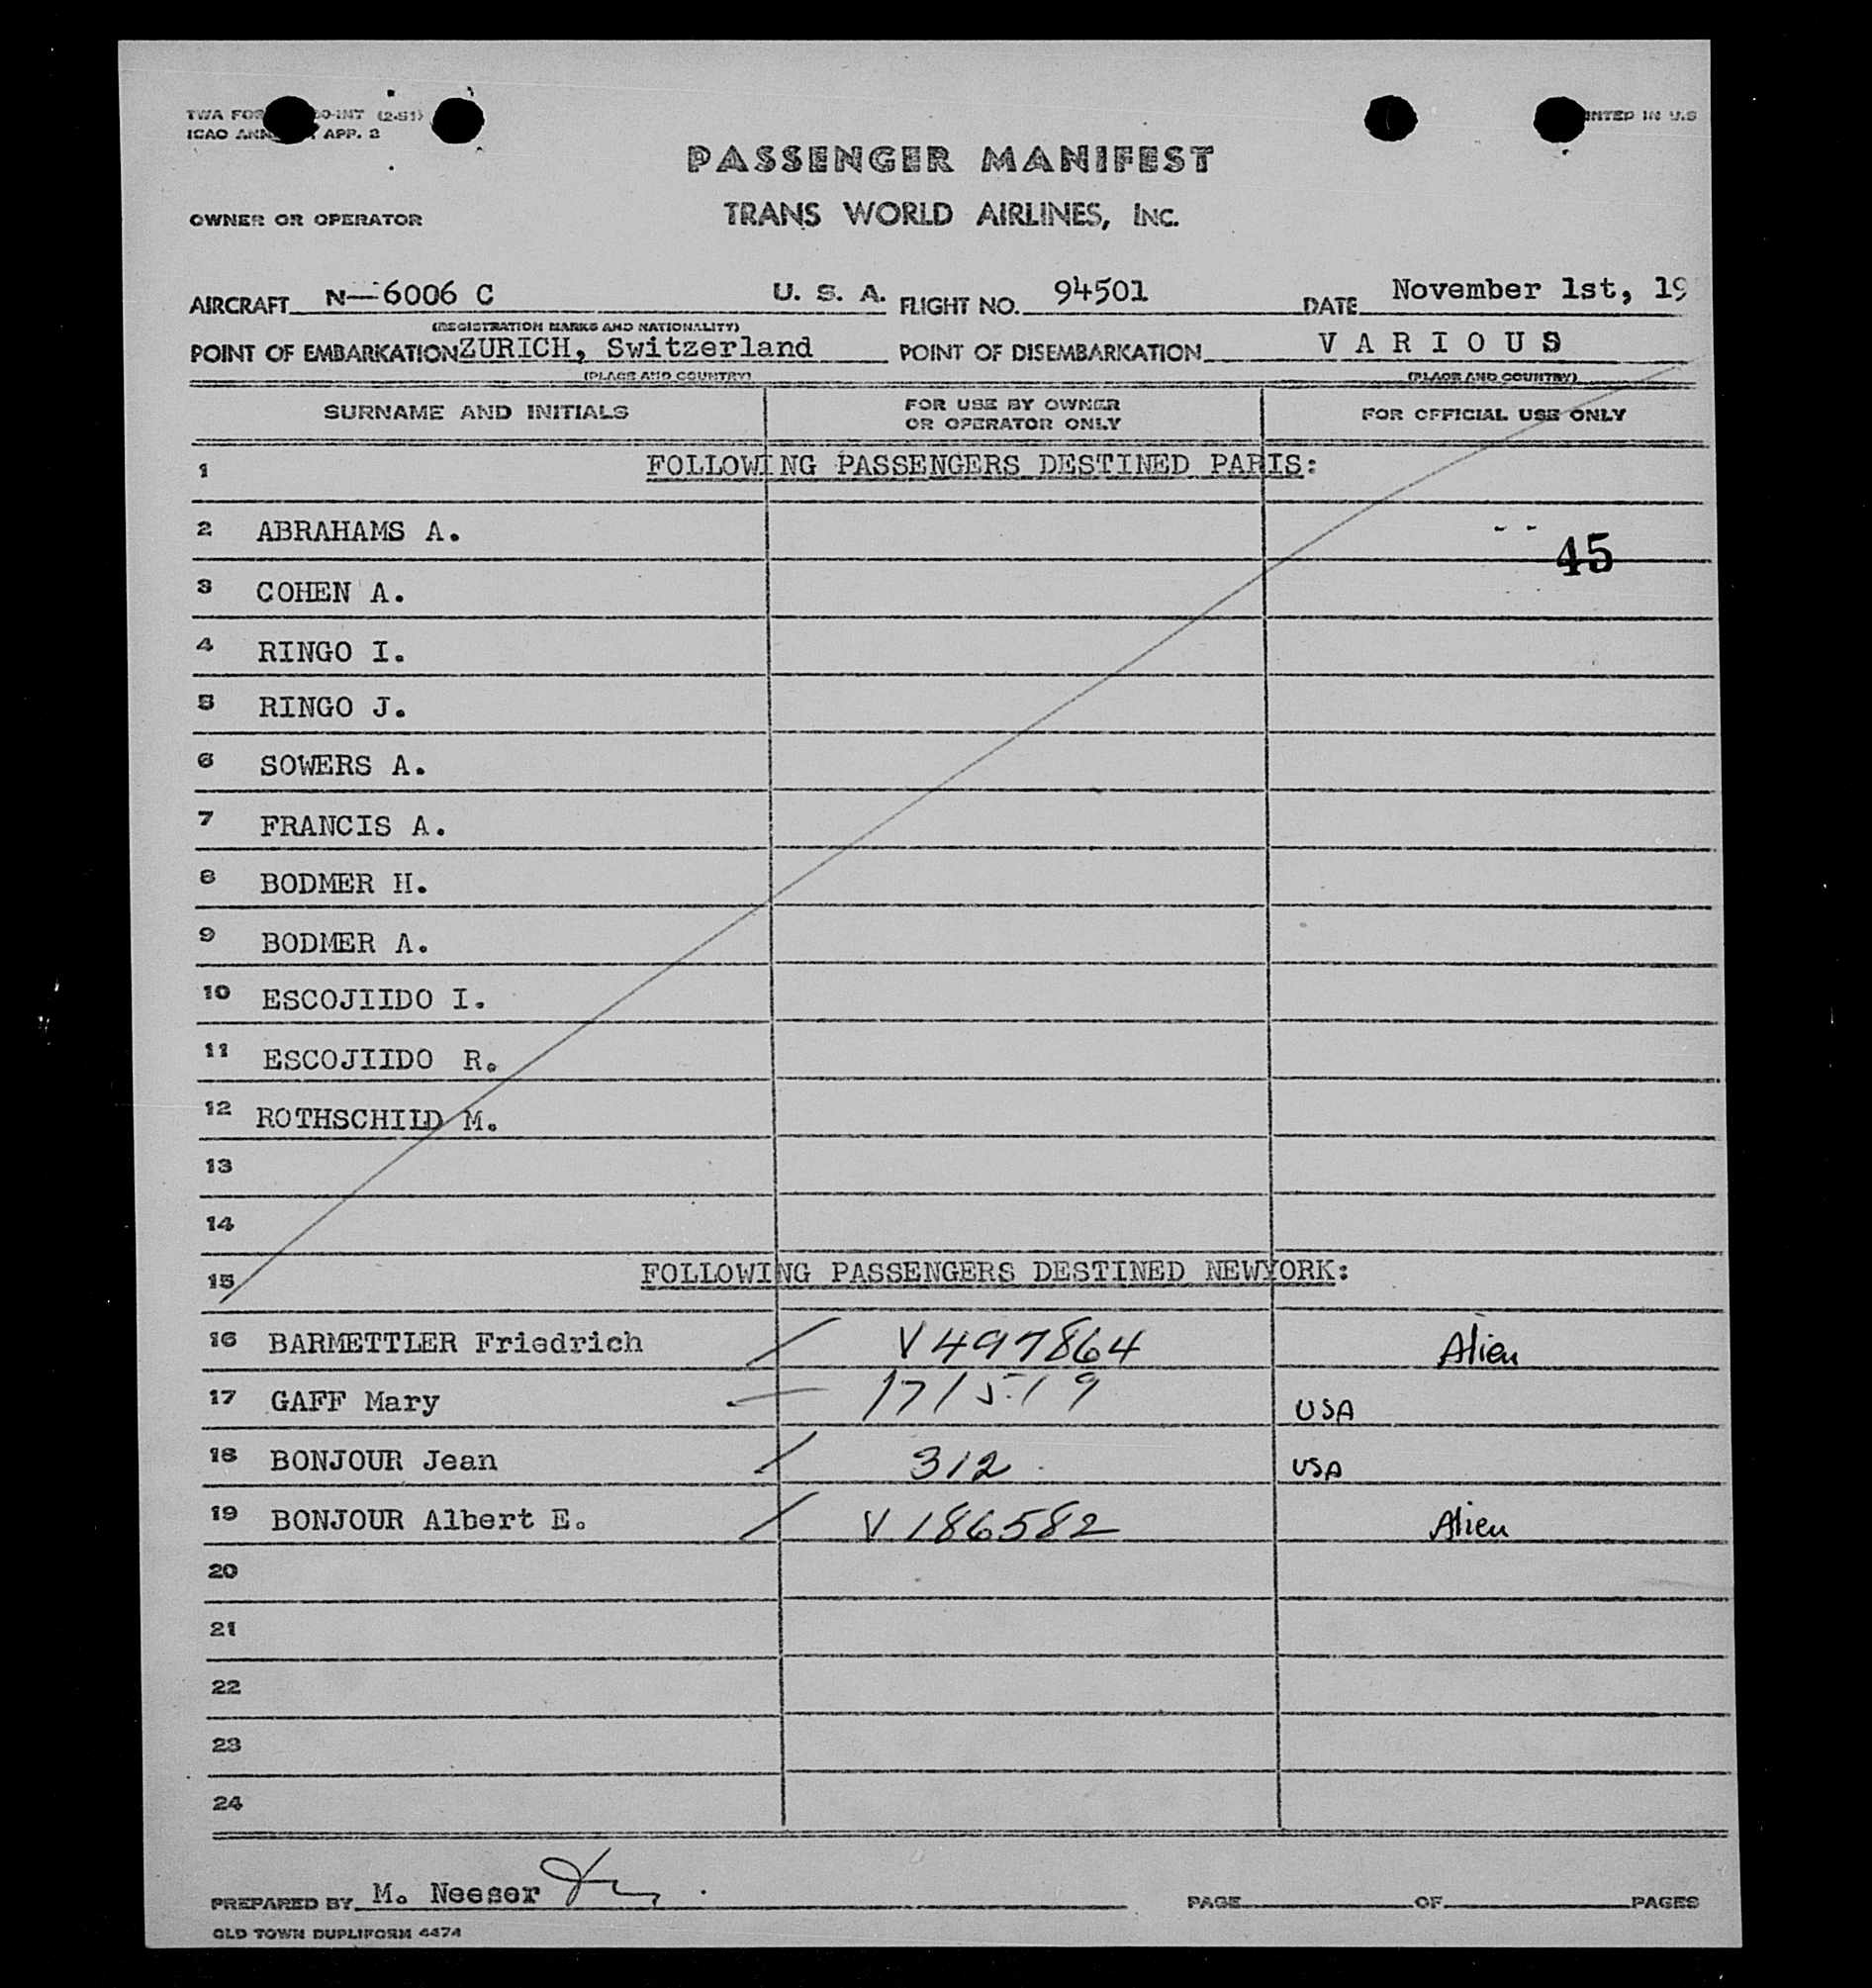 TWA FOR 0-INT (2-51)
ICAO ANN APP. 2
INTED IN U.S
PASSENGER MANIFEST
OWNER OR OPERATOR TRANS WORLD AIRLINES, INC.
AIRCRAFT N-6006 C U. S. A. FLIGHT NO. 94501 DATE November 1st, 19
(REGISTRATION MARKS AND NATIONALITY)
POINT OF EMBARKATION ZURICH, Switzerland POINT OF DISEMBARKATION V A R I O U S
(PLACE AND COUNTRY) (PLACE AND COUNTRY)
SURNAME AND INITIALS FOR USE BY OWNER OR OPERATOR ONLY FOR OFFICIAL USE ONLY
1 FOLLOWING PASSENGERS DESTINED PARIS:
2 ABRAHAMS A.
45
3 COHEN A.
4 RINGO I.
5 RINGO J.
6 SOWERS A.
7 FRANCIS A.
8 BODMER H.
9 BODMER A.
10 ESCOJIIDO I.
11 ESCOJIIDO R.
12 ROTHSCHILD M.
13
14
15 FOLLOWING PASSENGERS DESTINED NEWYORK:
16 BARMETTLER Friedrich V497864 Alien
17 GAFF Mary 171519 USA
18 BONJOUR Jean 312 USA
19 BONJOUR Albert E. V186582 Alien
20
21
22
23
24
PREPARED BY M. Neeser PAGE OF PAGES
OLD TOWN DUPLIFORM 4474